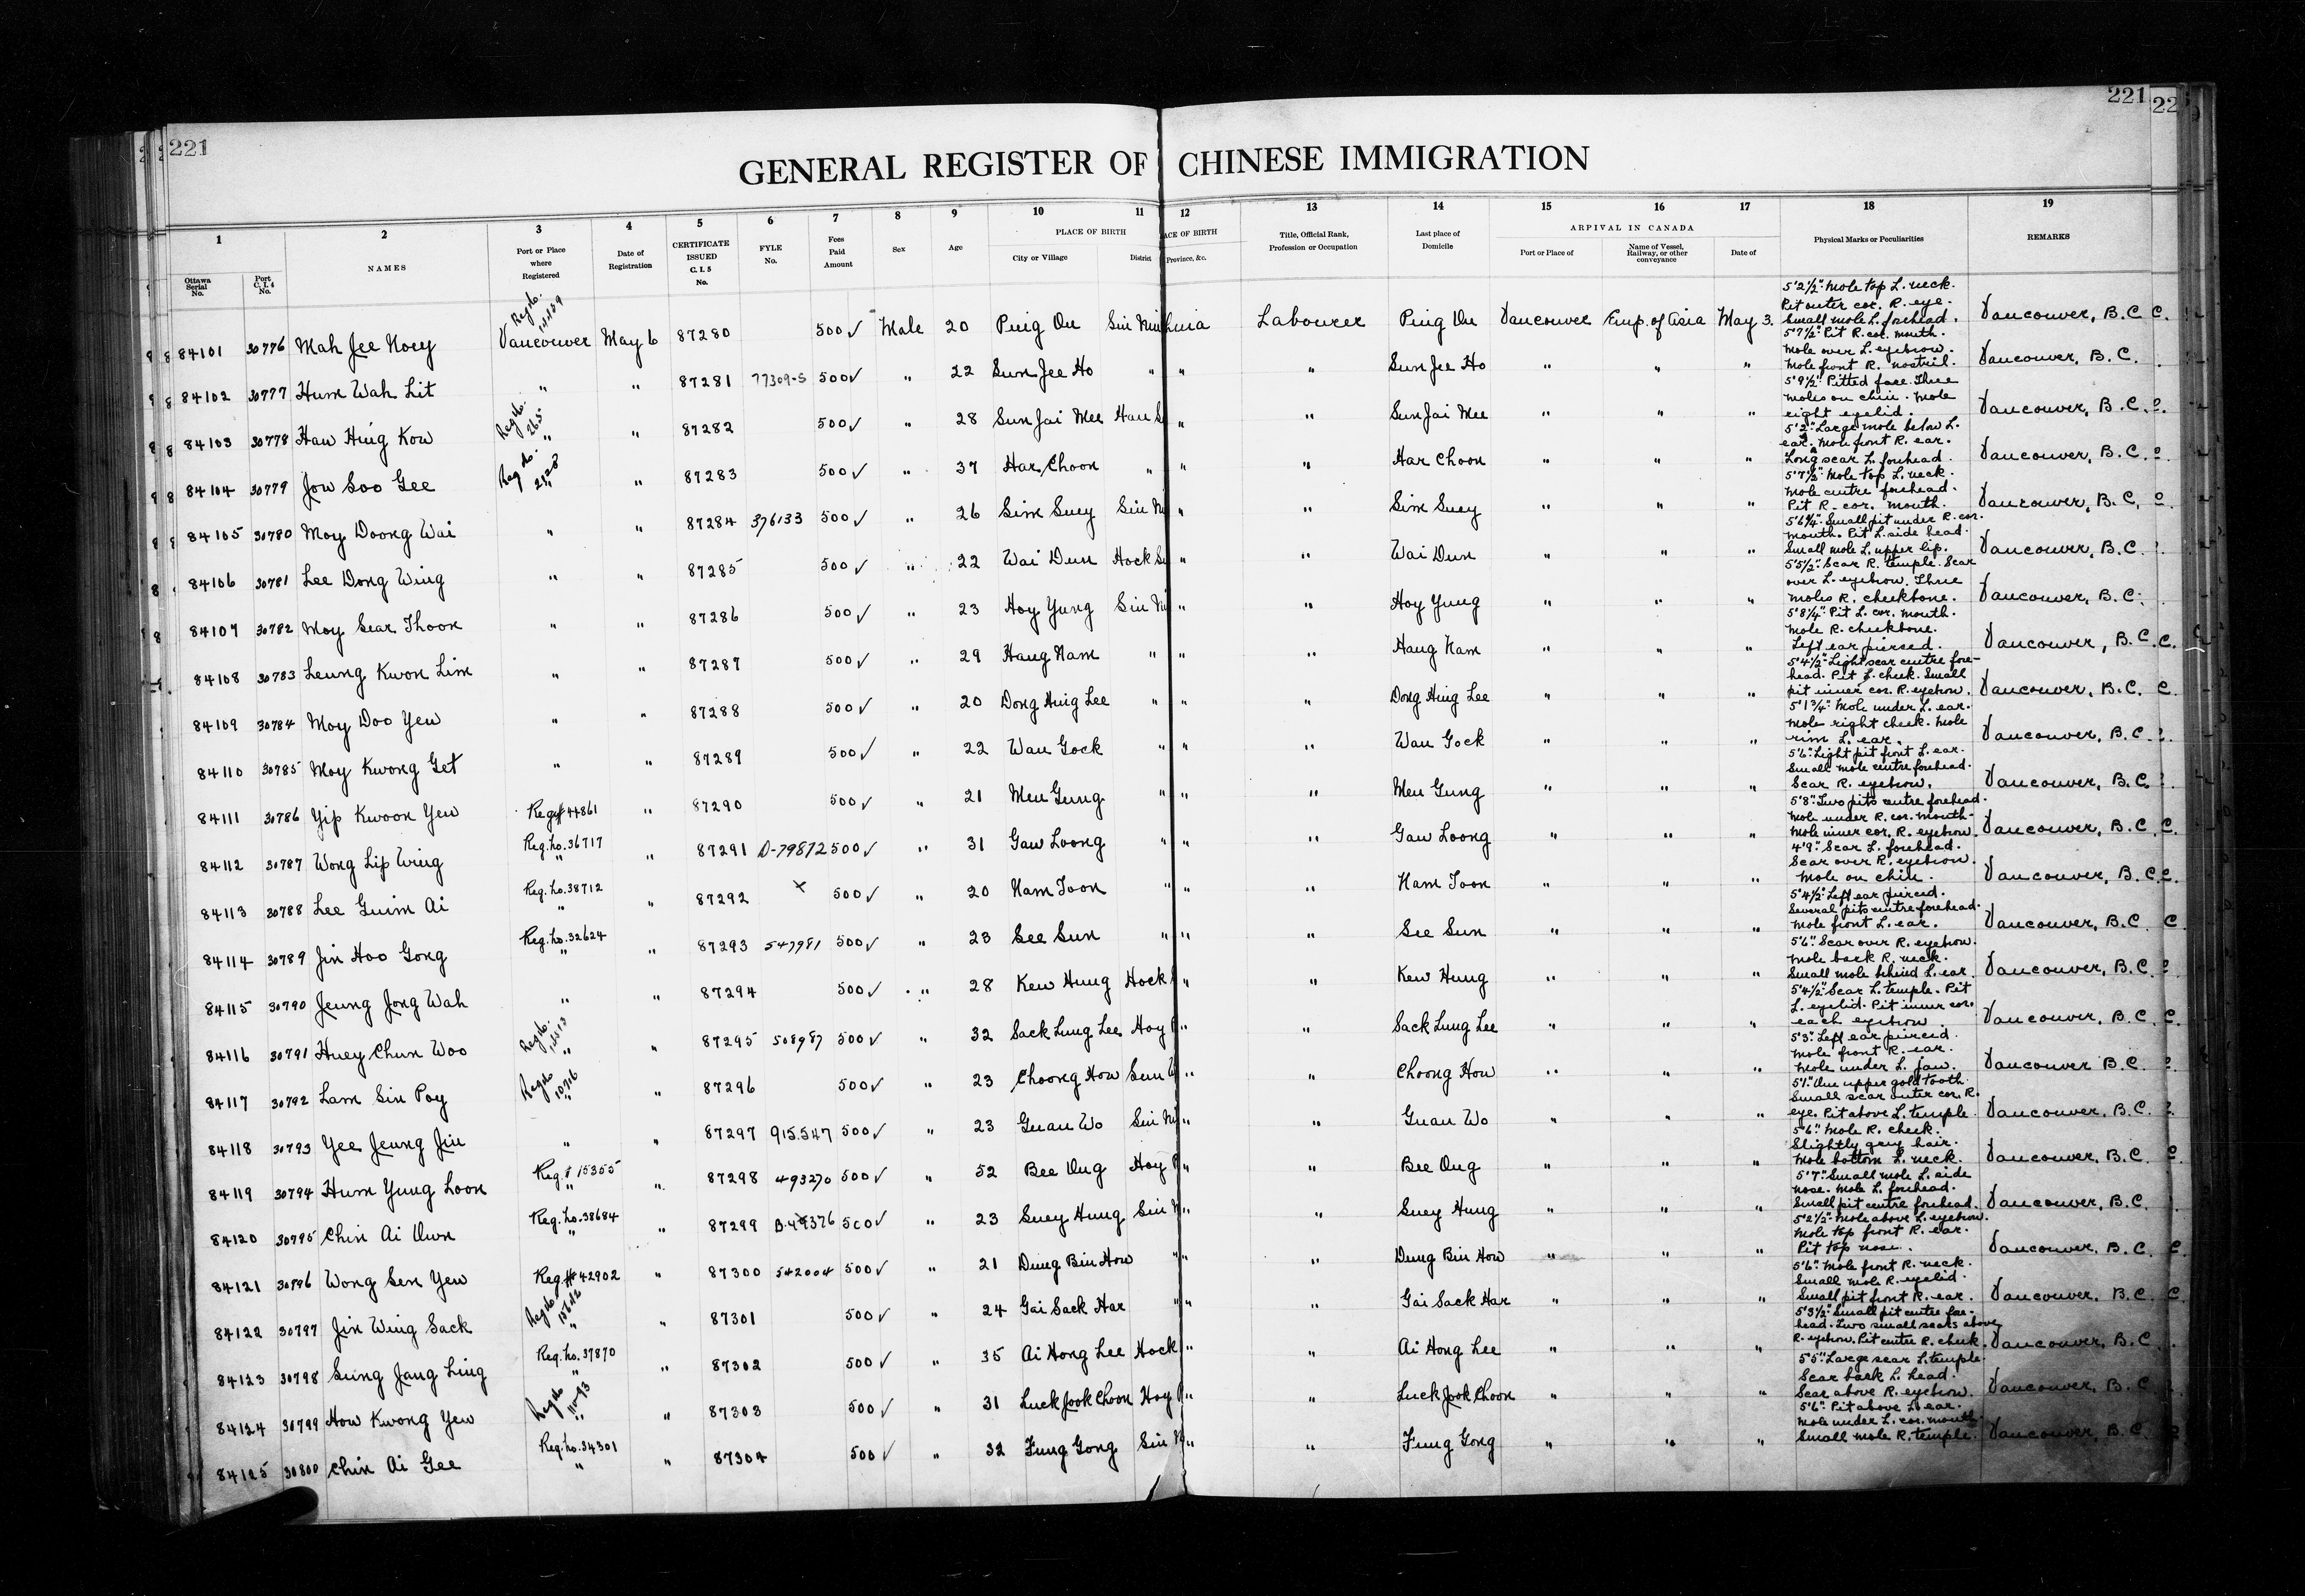 221
221
22
GENERAL REGISTER OF CHINESE IMMIGRATION
1 2 3 4 5 6 7 8 9 10 11 12 13 14 15 16 17 18 19
Ottawa Serial No.
Port C. I. 4 No.
NAMES
Port or Place where Registered
Date of Registration
CERTIFICATE ISSUED C. I. 5 No.
FYLE No.
Fees Paid Amount
Sex
Age
PLACE OF BIRTH
City or Village
District
ACE OF BIRTH
Province, &c.
Title, Official Rank, Profession or Occupation
Last place of Domicile
ARRIVAL IN CANADA
Port or Place of
Name of Vessel, Railway, or other conveyance
Date of
Physical Marks or Peculiarities
REMARKS
84101 30776 Mah Jee Noey Vancouver May 6 87280 500 ✓ Male 20 Ping On Sin Nin China Labourer Ping On Vancouver Emp. of Asia May 3. 5'2½" Mole top L. neck. Pit outer cor. R. eye. Small mole L. forehead. Vancouver, B.C.
84102 30777 Hum Wah Lit " " 87281 77309-S 500 ✓ " 22 Sun Jee Ho " " " Sun Jee Ho " " " 5'7½" Pit R. cor. mouth. Mole over L. eyebrow. Mole front R. nostril. Vancouver, B.C.
84103 30778 Haw Hing Kow Reg. No. 265 " " 87282 500 ✓ " 28 Sun Jai Mee Hau S " " Sun Jai Mee " " " 5'9½" Pitted face. Three moles on chin. Mole right eyelid. Vancouver, B.C.
84104 30779 Jow Soo Gee Reg. No. 2128 " " 87283 500 ✓ " 37 Har Choon " " " Har Choon " " " 5'2" Large mole below L. ear. Mole front R. ear. Long scar L. forehead. Vancouver, B.C.
84105 30780 Moy Doong Wai " " 87284 376133 500 ✓ " 26 Sim Suey Sin Ni " " Sim Suey " " " 5'7½" Mole top L. neck. Mole centre forehead. Pit R. cor. mouth. Vancouver, B.C.
84106 30781 Lee Dong Wing " " 87285 500 ✓ " 22 Wai Dun Hock S " " Wai Dun " " " 5'6¾" Small pit under R. cor. mouth. Pit L. side head. Small mole L. upper lip. Vancouver, B.C.
84107 30782 Moy Sear Thoon " " 87286 500 ✓ " 23 Hoy Yung Sin Ni " " Hoy Yung " " " 5'5½" Scar R. temple. Scar over L. eyebrow. Three moles R. cheekbone. Vancouver, B.C.
84108 30783 Leung Kwon Lim " " 87287 500 ✓ " 29 Hang Nam " " " Hang Nam " " " 5'8¼" Pit L. cor. mouth. Mole R. cheekbone. Left ear pierced. Vancouver, B.C.
84109 30784 Moy Doo Yew " " 87288 500 ✓ " 20 Dong Hing Lee " " " Dong Hing Lee " " " 5'4½" Light scar centre forehead. Pit L. cheek. Small pit inner cor. R. eyebrow. Vancouver, B.C.
84110 30785 Moy Kwong Get " " 87289 500 ✓ " 22 Wan Gock " " " Wan Gock " " " 5'1¾" Mole under L. ear. Mole right cheek. Mole rim L. ear. Vancouver, B.C.
84111 30786 Yip Kwoon Yew Reg # 44861 " 87290 500 ✓ " 21 Men Gung " " " Men Gung " " " 5'6" Light pit front L. ear. Small mole centre forehead. Scar R. eyebrow. Vancouver, B.C.
84112 30787 Wong Lip Wing Reg. No. 36717 " " 87291 D-79872 500 ✓ " 31 Gaw Loong " " " Gaw Loong " " " 5'8" Two pits centre forehead. Mole under R. cor. mouth. Mole inner cor. R. eyebrow. Vancouver, B.C.
84113 30788 Lee Guim Ai Reg. No. 38712 " " 87292 x 500 ✓ " 20 Nam Toon " " " Nam Toon " " " 4'9" Scar L. forehead. Scar over R. eyebrow. Mole on chin. Vancouver, B.C.
84114 30789 Jin Hoo Gong Reg. No. 32624 " " 87293 547981 500 ✓ " 23 See Sun " " " See Sun " " " 5'4½" Left ear pierced. Several pits centre forehead. Mole front L. ear. Vancouver, B.C.
84115 30790 Jeung Jong Wah " " 87294 500 ✓ " 28 Kew Hung Hock " " Kew Hung " " " 5'6" Scar over R. eyebrow. Mole back R. neck. Small mole behind L. ear. Vancouver, B.C.
84116 30791 Huey Chun Woo " " 87295 508987 500 ✓ " 32 Sack Lung Lee Hoy " " Sack Lung Lee " " " 5'4½" Scar L. temple. Pit L. eyelid. Pit inner cor. each eyebrow. Vancouver, B.C.
84117 30792 Lam Sin Poy Reg. No. 10716 " " 87296 500 ✓ " 23 Choong How Sun W " " Choong How " " " 5'3" Left ear pierced. Mole front R. ear. Mole under L. jaw. Vancouver B.C.
84118 30793 Yee Jeung Jin " " 87297 915.547 500 ✓ " 23 Guan Wo Sin Ni " " Guan Wo " " " 5'1" One upper gold tooth. Small scar outer cor. R. eye. Pit above L. temple. Vancouver, B.C.
84119 30794 Hum Yung Loon Reg. # 15355 " " 87298 493270 500 ✓ " 52 Bee Ong Hoy " " Bee Ong " " " 5'6" Mole R. cheek. Slightly grey hair. Mole bottom L. neck. Vancouver, B.C.
84120 30795 Chin Ai Own Reg. No. 38684 " " 87299 B-49376 500 ✓ " 23 Suey Hung Sin " " Suey Hung " " " 5'7" Small mole L. side nose. Mole L. forehead. Small pit centre forehead. Vancouver, B.C.
84121 30796 Wong Sen Yew Reg # 42902 " 87300 542004 500 ✓ " 21 Dung Bin How " " " Dung Bin How " " " 5'2½" Mole above L. eyebrow. Mole top front R. ear. Pit top nose. Vancouver, B.C.
84122 30797 Jin Wing Sack " " 87301 500 ✓ " 24 Gai Sack Har " " " Gai Sack Har " " " 5'6" Mole front R. neck. Small mole R. eyelid. Small pit front R. ear. Vancouver, B.C.
84123 30798 Sung Jang Ling Reg. No. 37870 " " 87302 500 ✓ " 35 Ai Hong Lee Hock " " Ai Hong Lee " " " 5'3½" Small pit centre forehead. Two small scars above R. eyebrow. Pit center R. cheek. Vancouver, B.C.
84124 30799 How Kwong Yew " " 87303 500 ✓ " 31 Luck Jook Choon Hoy " " Luck Jook Choon " " " 5'5" Large scar L. temple. Scar back L. head. Scar above R. eyebrow. Vancouver, B.C.
84125 30800 Chin Ai Gee Reg. No. 34301 " " 87304 500 ✓ " 32 Fung Gong Sin N " " Fung Gong " " " 5'6" Pit above L. ear. Mole under L. cor. mouth. Small mole R. temple. Vancouver, B.C.